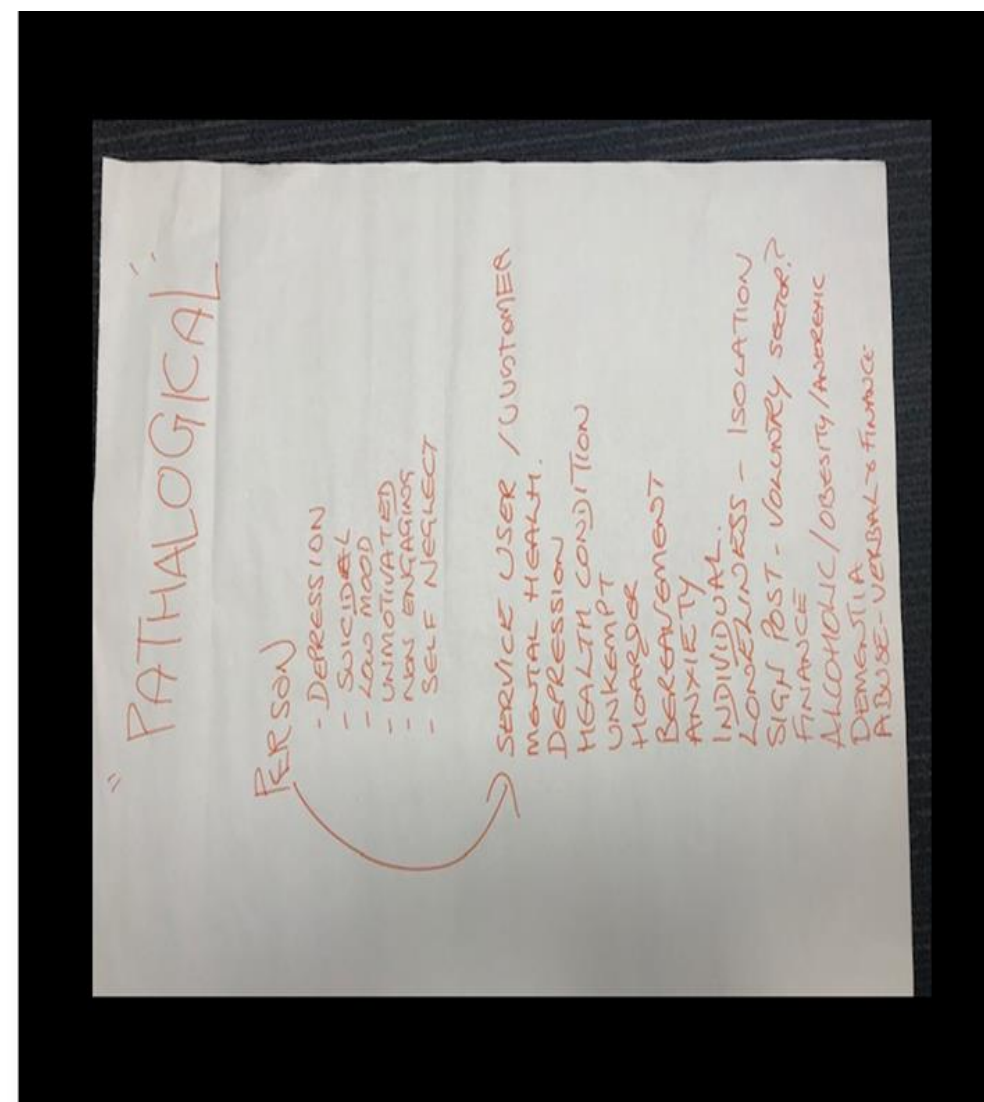 " PATHALOGICAL "
PERSON
- DEPRESSION
- SUICIDAL
- LOW MOOD
- UNMOTIVATED
- NON ENGAGING
- SELF NEGLECT
SERVICE USER / CUSTOMER
MENTAL HEALTH.
DEPRESSION
HEALTH CONDITION
UNKEMPT
HOARDER
BEREAVEMENT
ANXIETY
INDIVIDUAL.
LONELINESS - ISOLATION
SIGN POST - VOLUNTRY SECTOR?
FINANCE
ALCOHOLIC / OBESITY / ANOREXIC
DEMENTIA
ABUSE - VERBAL & FINANCE